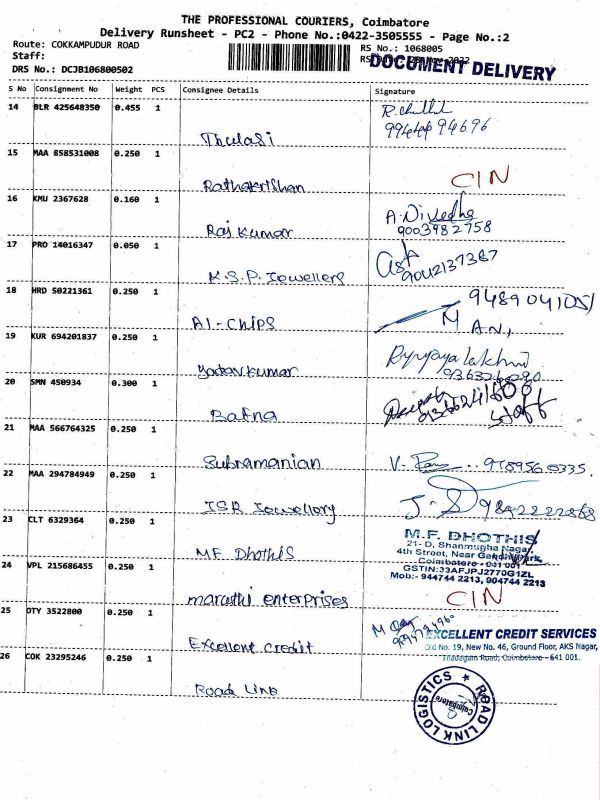 THE PROFESSIONAL COURIERS, Coimbatore
Delivery Runsheet - PC2 - Phone No.:0422-3505555 - Page No.:2
Route: COKKAMPUDUR ROAD
RS No.: 1068005
Staff:
DOCUMENT DELIVERY
DRS No.: DCJB106800502
S No Consignment No Weight PCS Consignee Details Signature
14 BLR 425648350 0.455 1
Thulasi
99444 94696
15 MAA 858531008 0.250 1
Rathakrishan
CIN
16 KMU 2367628 0.160 1
Raj Kumar
A. Nivedha
9003982758
17 PRO 14016347 0.050 1
K.S.P. Jowellers
9042137367
18 HRD 50221361 0.250 1
AI-Chips
9489041051
MANI
19 KUR 694201837 0.250 1
Yadavkumar
20 SMN 450934 0.300 1
Bafna
Staff
21 MAA 566764325 0.250 1
Subramanian
V.
9789560335
22 MAA 294784949 0.250 1
ISR Jowellory
23 CLT 6329364 0.250 1
MF Dhothis
M.F. DHOTHIS
21- D, Shanmugha Nagar,
4th Street, Near Gandhi Park,
Coimbatore - 641 001
GSTIN:33AFJPJ2770G1ZL
Mob:- 944744 2213, 904744 2213
24 VPL 215686455 0.250 1
maruthi enterprises
CIN
25 DTY 3522800 0.250 1
Excellent Credit
EXCELLENT CREDIT SERVICES
Old No. 19, New No. 46, Ground Floor, AKS Nagar,
Thadagam Road, Coimbatore - 641 001.
26 COK 23295246 0.250 1
Road Link
ROAD LINK LOGISTICS
Coimbatore